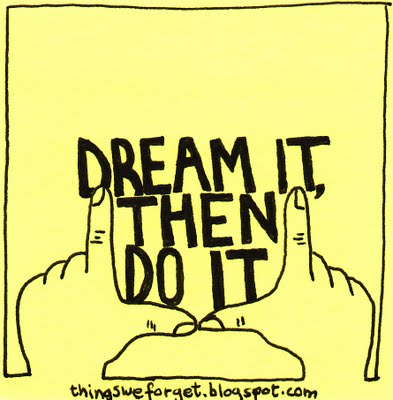 DREAM IT,
THEN
DO IT
thingsweforget.blogspot.com